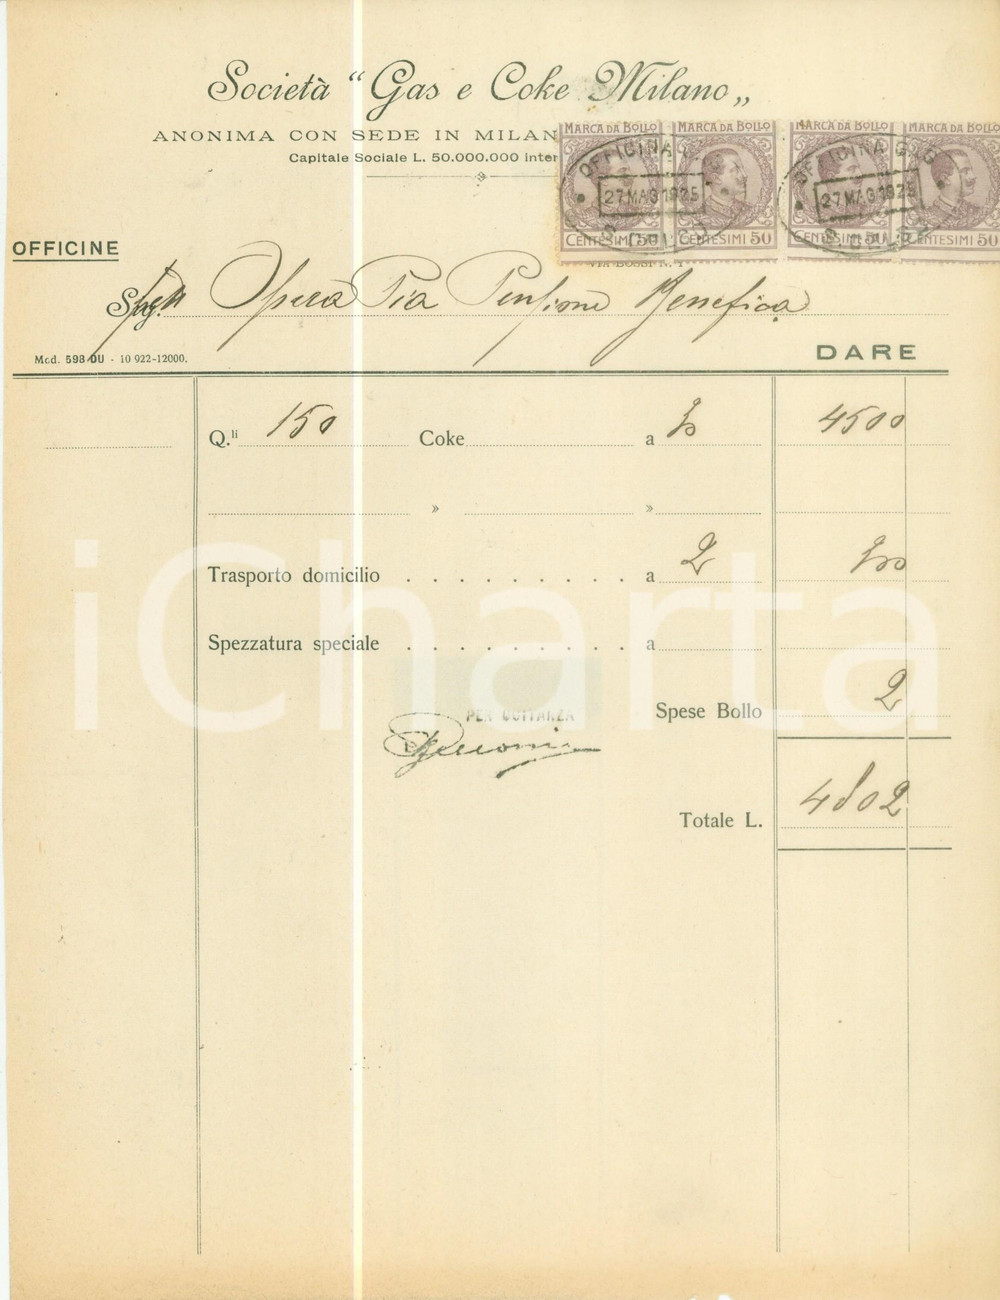 Società "Gas e Coke Milano„
ANONIMA CON SEDE IN MILAN
Capitale Sociale L. 50.000.000 inter
MARCA DA BOLLO MARCA DA BOLLO MARCA DA BOLLO MARCA DA BOLLO
OFFICINA OFFICINA GAS
27 MAG 1925 27 MAG 1925
CENTESIMI 50 CENTESIMI 50 CENTESIMI 50 CENTESIMI 50
VIA BOSSI N. 1
OFFICINE
Spett Opera Pia Pensione Benefica
Mod. 593 OU - 10 922-12000.
DARE
Q.li 150 Coke a 30 4500
» »
Trasporto domicilio . . . . . . . . . . a 2 300
Spezzatura speciale . . . . . . . . . . a
Spese Bollo 2
PER QUITANZA
Totale L. 4802
iCharta